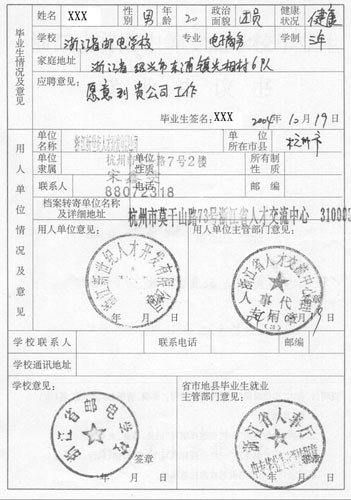 毕业生情况及意见
姓名 XXX 性别 男 年龄 20 政治面貌 团员 健康状况 健康
学校 浙江省邮电学校 专业 电子商务 学制 三年
家庭地址 浙江省绍兴市东浦镇光相村6队
应聘意见:
愿意到贵公司工作
毕业生签名:XXX 2004年10月19日
用人单位情况及意见
单位名称 单位所在市县 杭州市
单位隶属 杭州市 路7号2楼 单位性质 所有制性质
联系人 宋 电话 88072318 邮编
档案转寄单位名称及详细地址 杭州市莫干山路73号浙江省人才交流中心 310005
用人单位意见: 用人单位主管部门意见:
浙江新世纪人才开发有限公司
浙江省人才交流中心
人事代理
专用章
(3)
年 月 日
年 月 日
学校联系人 联系电话 邮编
学校通讯地址
学校意见: 省市地县毕业生就业主管部门意见:
浙江省邮电学校
签章
年 月 日
浙江省人事厅
签章
年 月 日